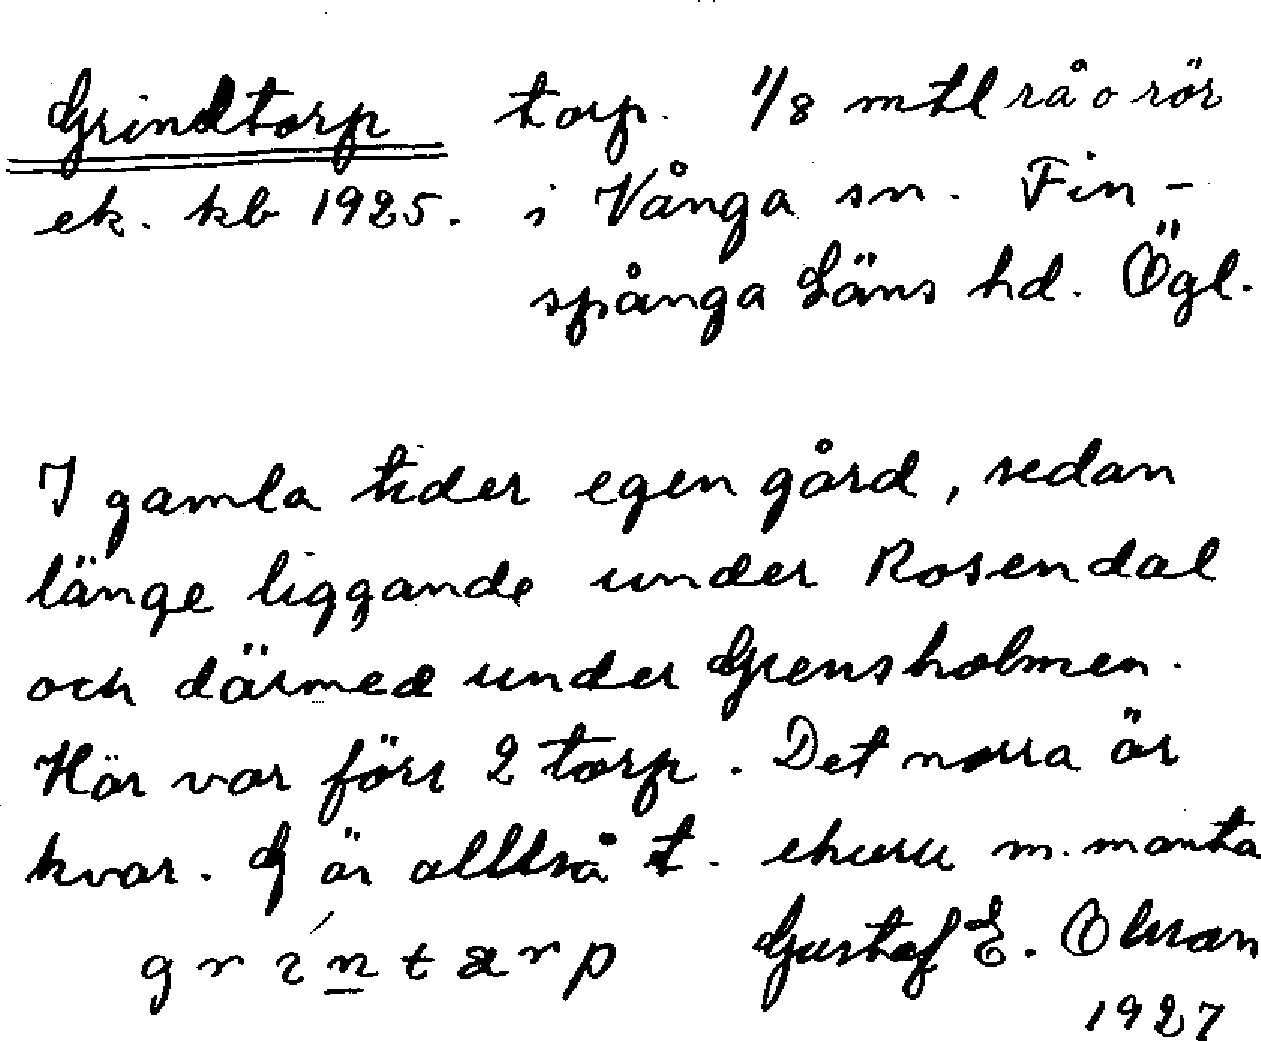 Grindtorp torp. 1/8 mtl rå o rör
ek. kb 1925. i Vånga sn. Fin-
spånga Läns hd. Ögl.
I gamla tider egen gård, sedan
länge liggande under Rosendal
och därmed under Grensholmen.
Här var förr 2 torp. Det norra är
kvar. G är alltså t. ehuru m. manta
grintarp Gustaf E. Olsson
1927